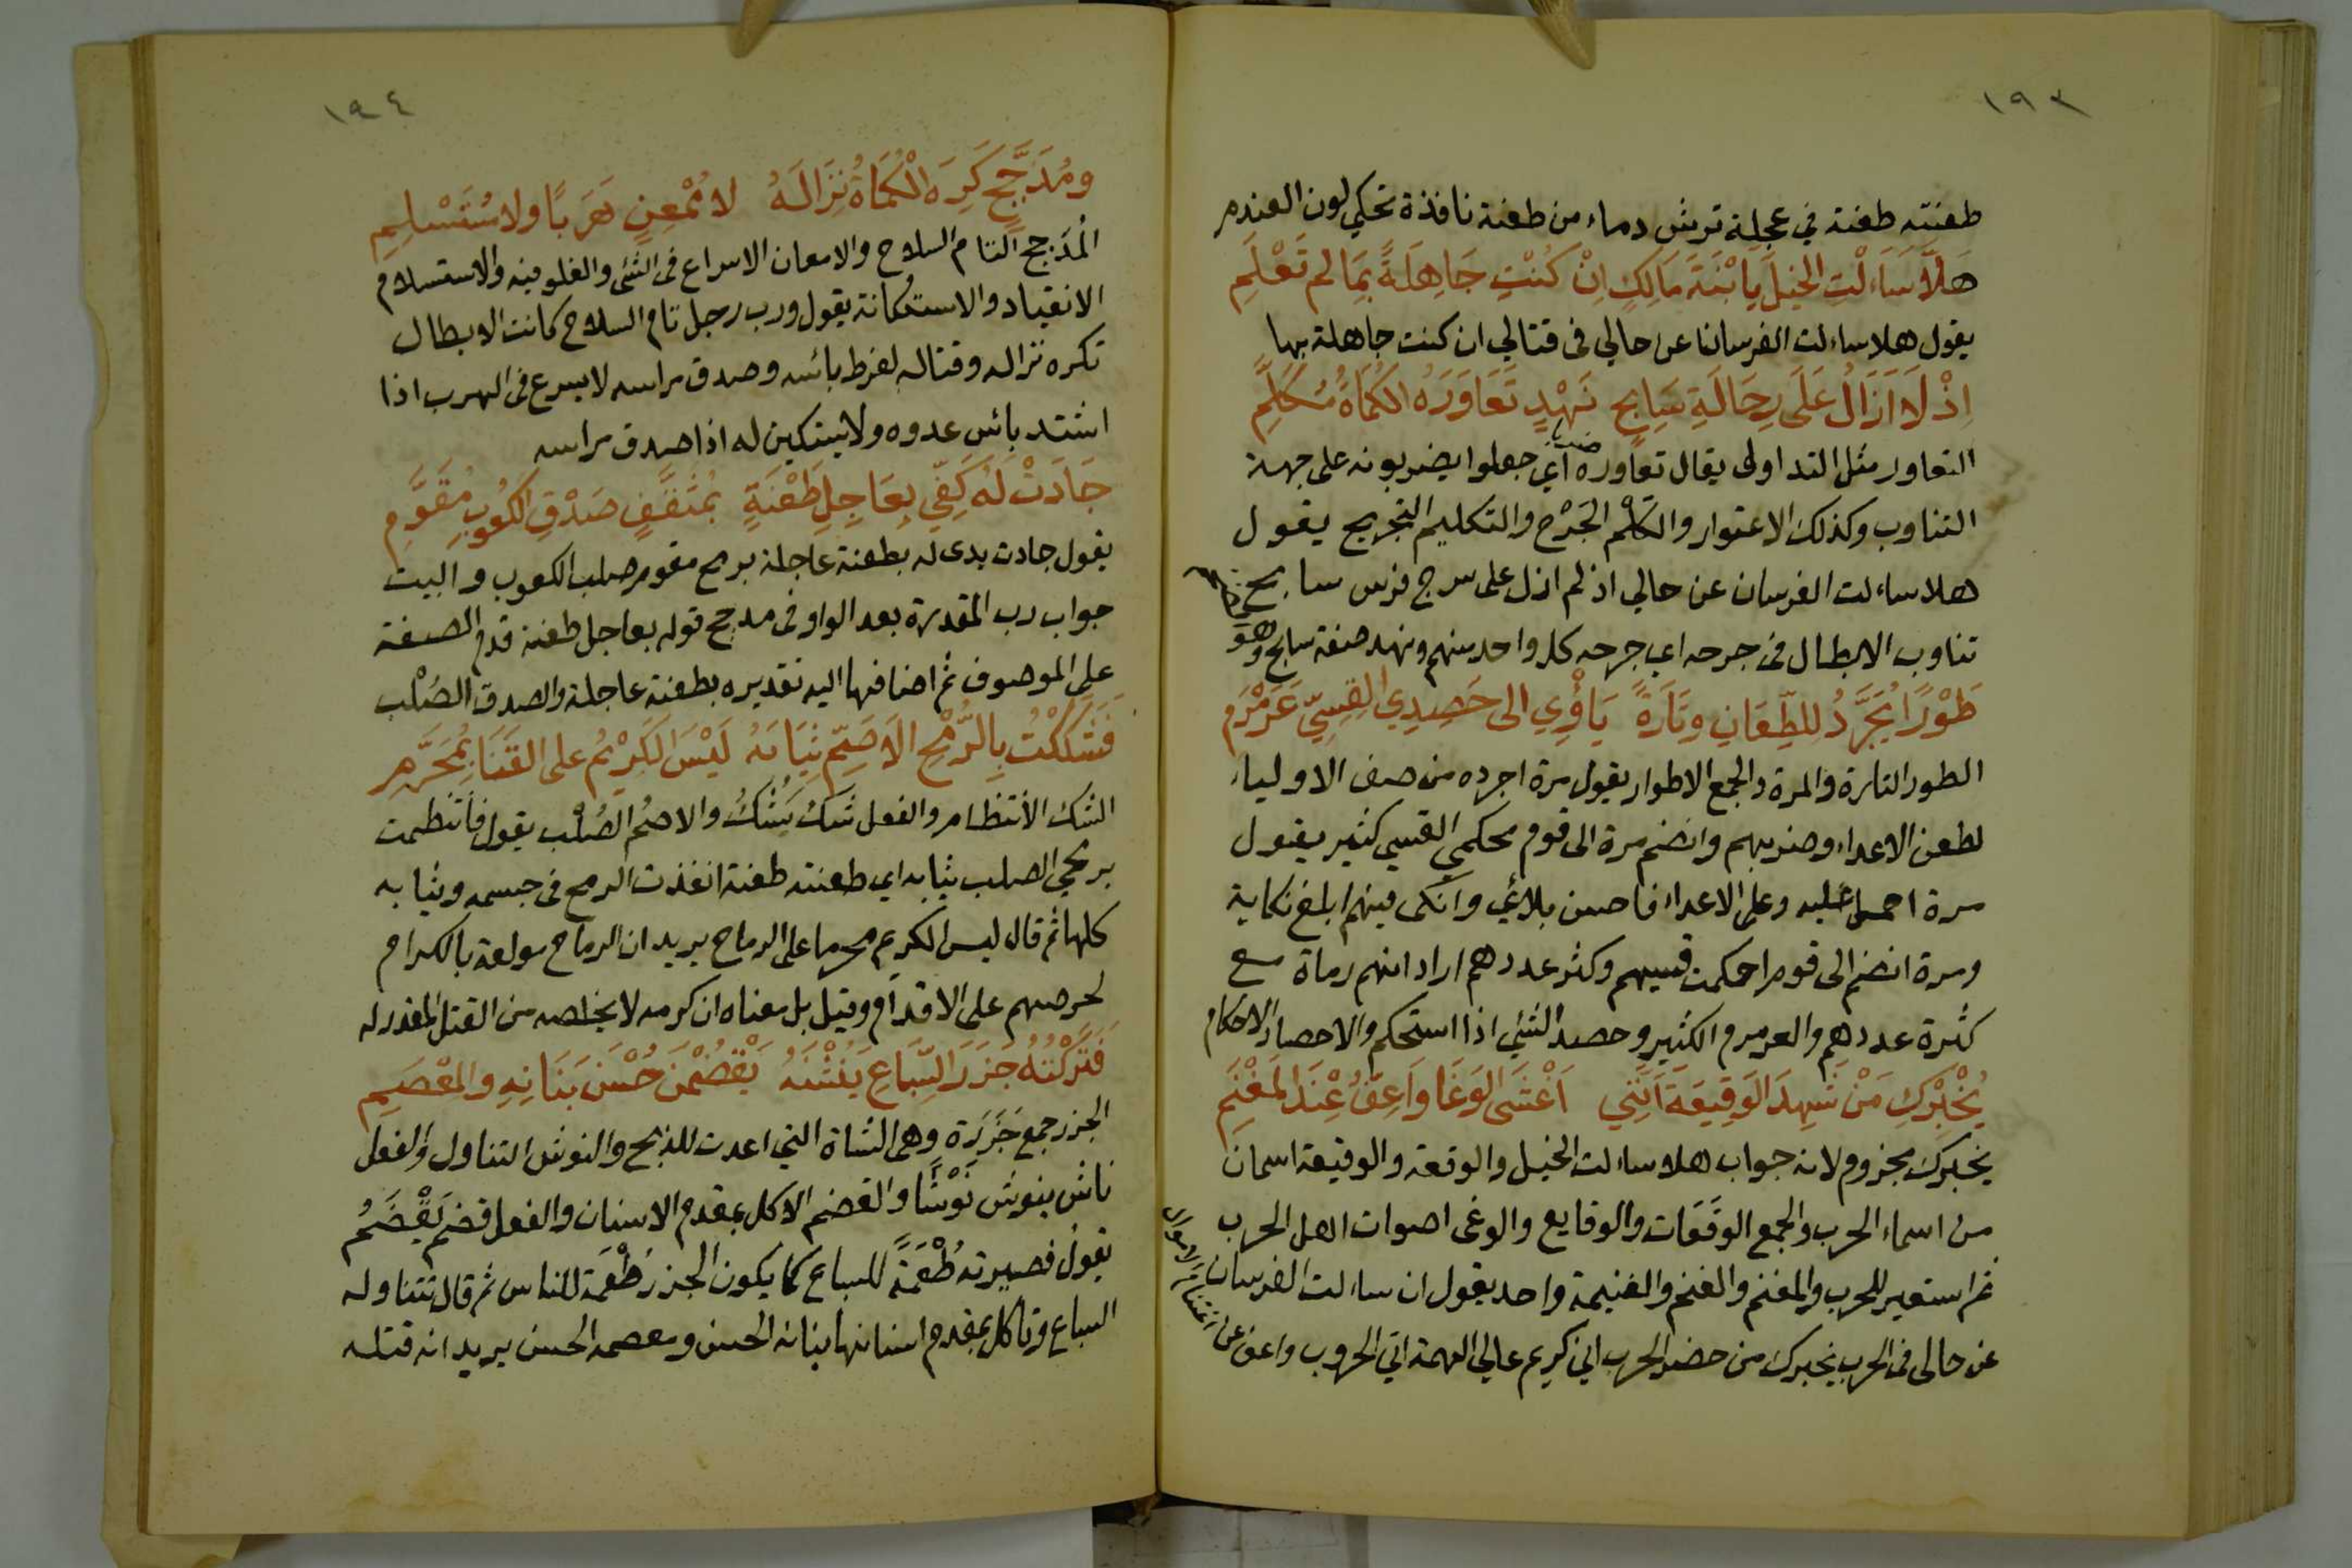 ١٩٣
طعنته طعنة في عجلة ترش دماء من طعنة نافذة تحكي لون العندم
هَلَّا سَاَلْتِ الخيلَ يا ابْنَةَ مَالِكٍ اِنْ كُنْتِ جَاهِلَةً بِمَا لم تَعْلَمِ
يقول هلا ساءلت الفرسانا عن حالي فى قتالي ان كنت جاهلة بها
اِذْ لَا اَزَالُ عَلَى رِحَالَةِ سَابِحٍ نَهْدٍ تَعَاوَرَهُ الكُمَاةُ مُكَلَّمِ
التعاور مثل التداول يقال تعاوره ضربا اي جعلوا يضربونه على جهة
التناوب وكذلك الاعتوار والكَلْم الجَرْح والتكليم التجريح يقول
هلا ساءلت الفرسان عن حالي اذ لم ازل على سرج فرس سابح
تناوب الابطال فى جرحه اي جرحه كل واحد منهم ونهد صفة سابح وهو
طَوْرًا يُجَرَّدُ لِلطِّعَانِ وتَارَةً يَأْوِي الى حَصِدِ القِسِيِّ عَرَمْرَمِ
الطور التارة والمرة والجمع الاطوار يقول مرة اجرده من صف الاولياء
لطعن الاعداء وضربهم وانضم مرة الى قوم محكمي القسي كثير يقول
مرة احمل عليه وعلى الاعداء فاحسن بلائي وانكى فيهم ابلغ نكاية
ومرة انضم الى قوم احكمت قسيهم وكثر عددهم اراد انهم رماة مع
كثرة عددهم والعرمرم الكثير وحصد الشئي اذا استحكم والاحصاد الاحكام
يُخْبِرْكِ مَنْ شَهِدَ الوَقِيعَةَ اَنَّنِي اَغْشَى الوَغَا وَاَعِفُّ عِنْدَ المَغْنَمِ
يخبرك مجزوم لانه جواب هلا ساءلت الخيل والوقعة والوقيعة اسمان
من اسماء الحرب والجمع الوَقَعَات والوقايع والوغى اصوات اهل الحرب
ثم استعير للحرب والمغنم والغنم والغنيمة واحد يقول ان ساءلت الفرسان
عن حالى فى الحرب يخبرك من حضر الحرب اني كريم عالي الهمة اتي الحروب واعف عن اغتنام الاموال
١٩٤
ومُدَجَّجٍ كَرِهَ الكُمَاةُ نِزَالَهُ لا مُمْعِنٍ هَرَبًا ولا مُسْتَسْلِمِ
المُدَجج التام السلاح والامعان الاسراع فى الشئى والغلو فيه والاستسلام
الانقياد والاستكانة يقول ورب رجل تام السلاح كانت الابطال
تكره نزاله وقتاله لفرط بائسه وصدق مراسه لا يسرع فى الهرب اذا
اشتد بائس عدوه ولا يستكين له اذا صدق مراسه
جَادَتْ لَهُ كَفِّي بِعَاجِلِ طَعْنَةٍ بِمُثَقَّفٍ صَدْقِ الكُعُوبِ مُقَوَّمِ
يقول جادت يدى له بطعنة عاجلة برمح مقوم صلب الكعوب والبيت
جواب رب المقدرة بعد الواو فى مدجج قوله بعاجل طعنة قدم الصفة
على الموصوف ثم اضافها اليه تقديره بطعنة عاجلة والصدق الصُلْب
فَشَكَكْتُ بِالرُّمْحِ الاَصَمِّ ثِيَابَهُ لَيْسَ الكَرِيْمُ على القَنَا بِمُحَرَّمِ
الشك الانتظام والفعل شَكَّ يَشُكُّ والاصم الصُلْب يقول فانتظمت
برمحي الصلب ثيابه اي طعنته طعنة انفذت الرمح فى جسمه وثيابه
كلها ثم قال ليس الكريم محرما على الرماح يريد ان الرماح مولعة بالكرام
لحرصهم على الاقدام وقيل بل معناه ان كرمه لا يخلصه من القتل المقدر له
فَتَرَكْتُهُ جَزَرَ السِّبَاعِ يَنُشْنَهُ يَقْضُمْنَ حُسْنَ بَنَانِهِ والمِعْصَمِ
الجزر جمع جَزَرَة وهى الشاة التي اعدت للذبح والنوش التناول والفعل
ناش ينوش نَوْشًا والقضم الاكل بمقدم الاسنان والفعل قضم يَقْضَمُ
يقول فصيرته طُعْمَةً للسباع كما يكون الجزر طُعْمَة للناس ثم قال تتناوله
السباع وتاكل بمقدم اسنانها بنانه الحسن ومعصمه الحسن يريد انه قتله